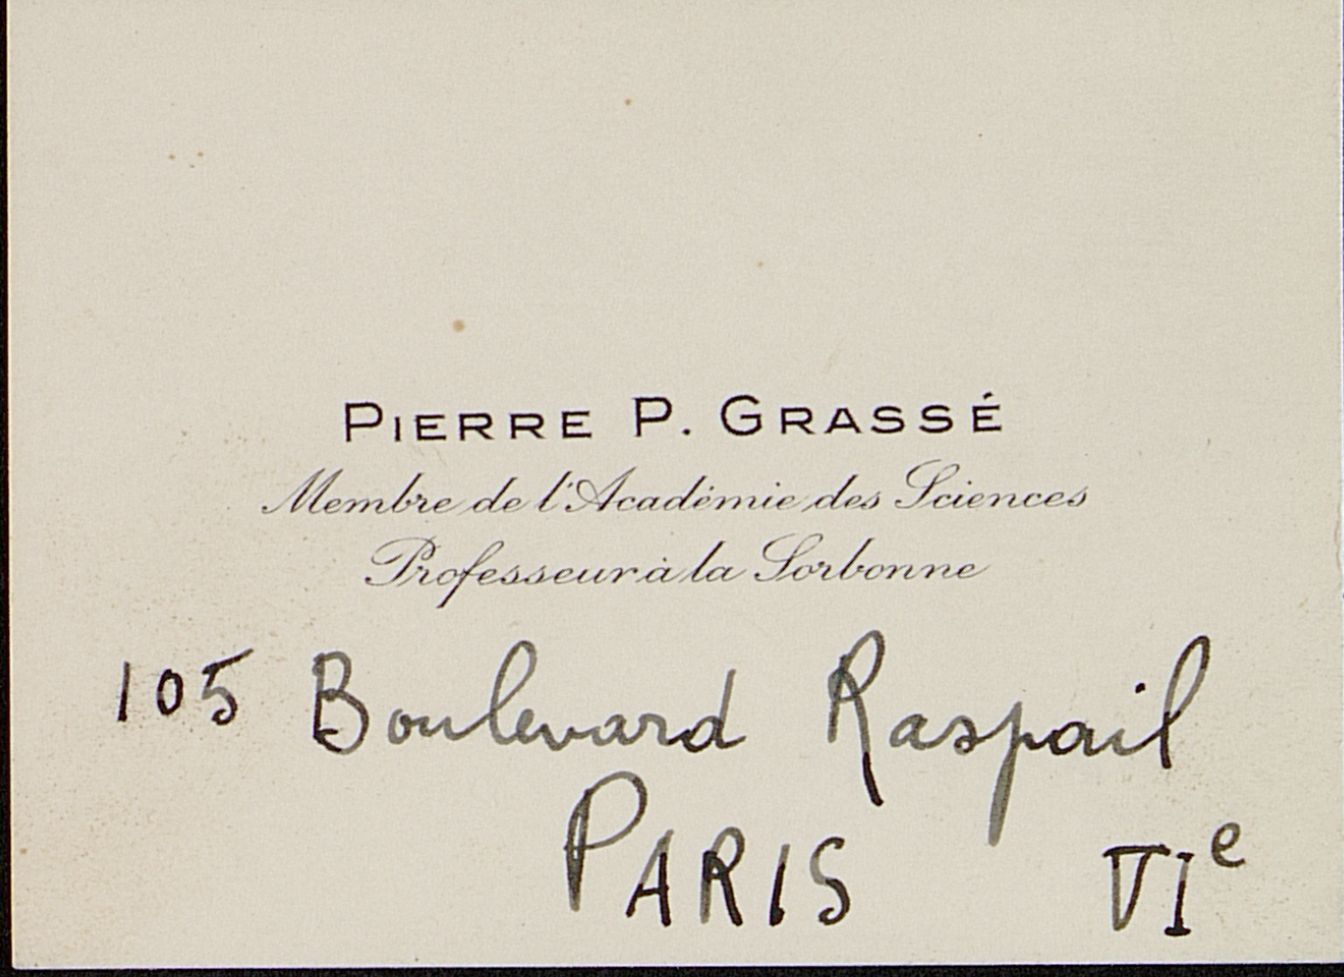 PIERRE P. GRASSÉ
Membre de l'Académie des Sciences
Professeur à la Sorbonne
105 Boulevard Raspail
PARIS VIe